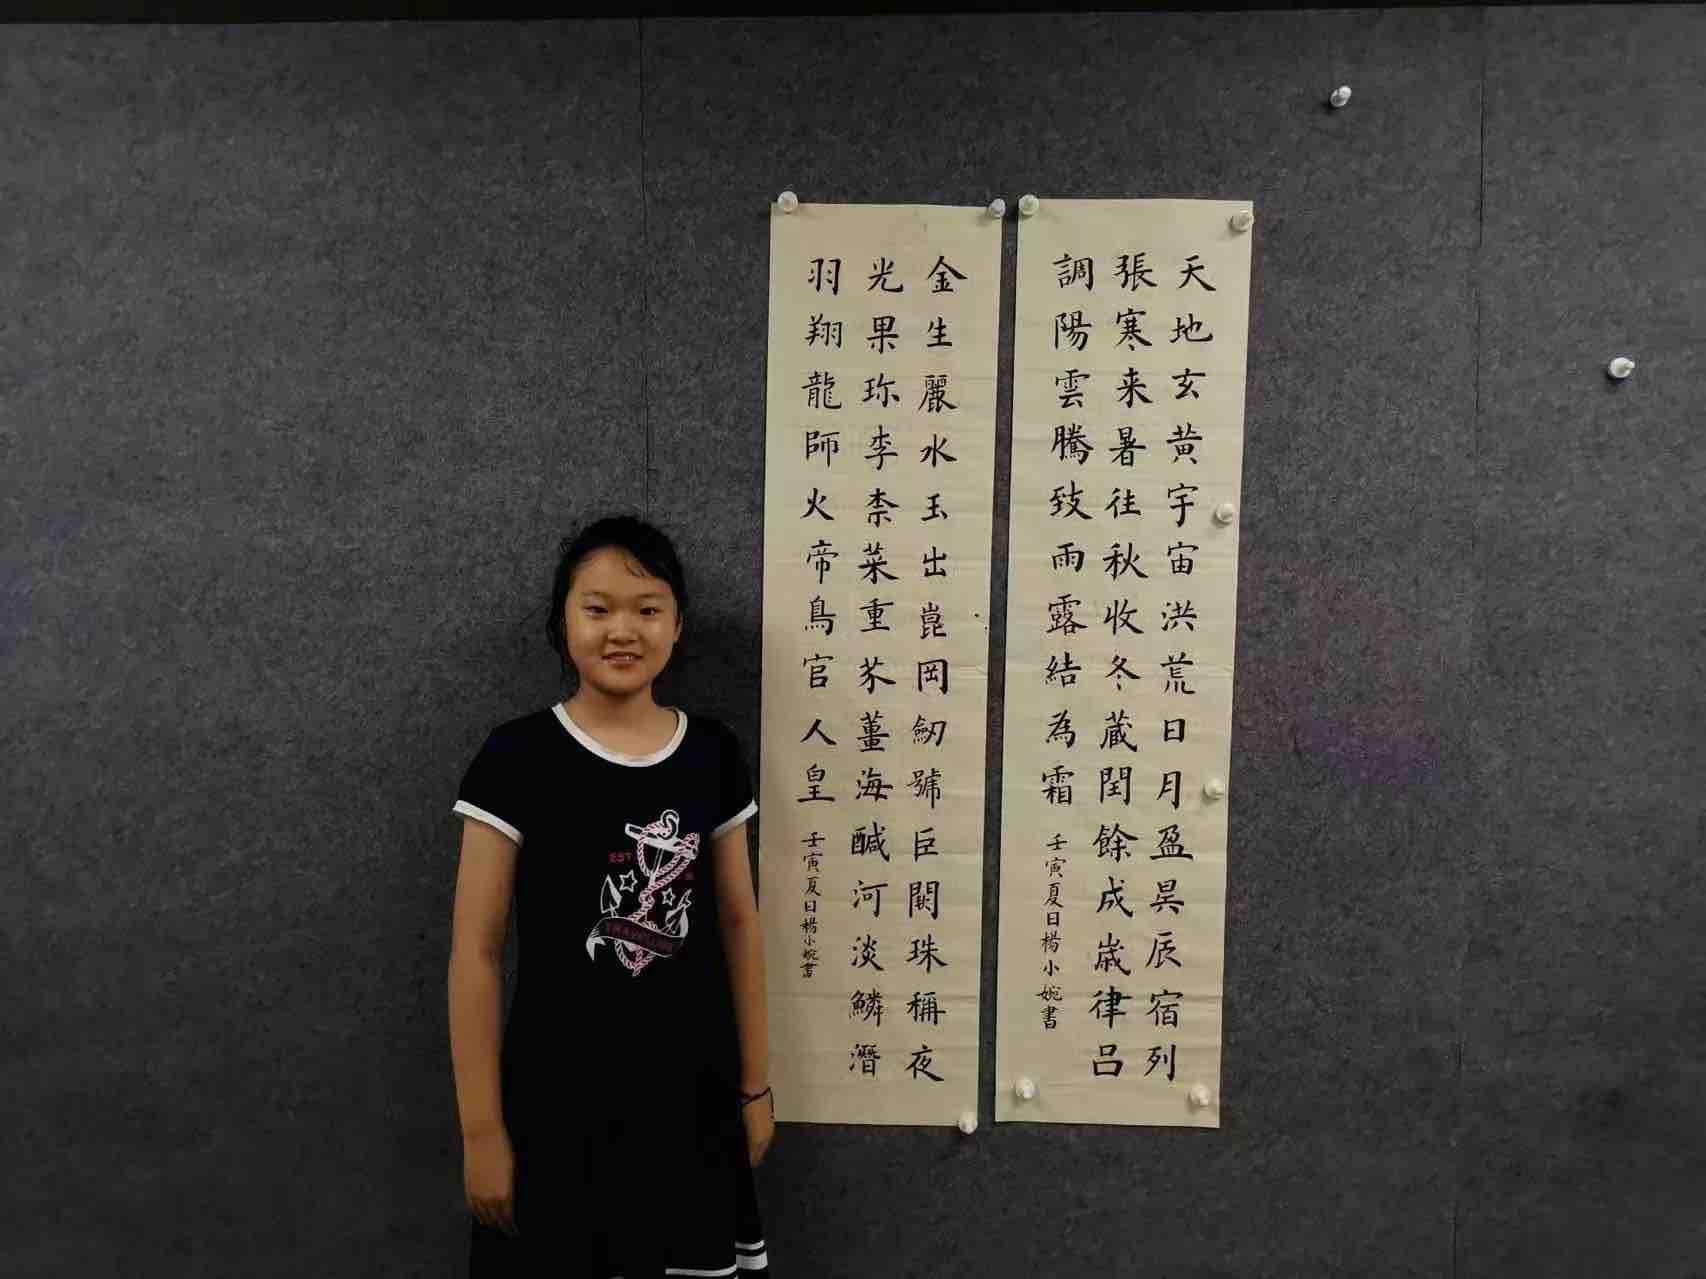 天地玄黄宇宙洪荒日月盈昃辰宿列
張寒来暑往秋收冬蔵閏餘成歳律吕
調陽雲騰致雨露結為霜
壬寅夏日楊小婉書
金生麗水玉出崑岡劒號巨闕珠稱夜
光果珎李柰菜重芥薑海醎河淡鱗潛
羽翔龍師火帝鳥官人皇
壬寅夏日楊小婉書
EST